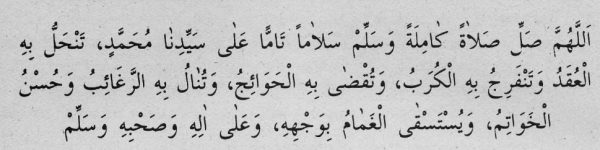 اَللّٰهُمَّ صَلِّ صَلَاةً كَامِلَةً وَسَلِّمْ سَلَاماً تَامًّا عَلٰى سَيِّدِنَا مُحَمَّدٍ، تَنْحَلُّ بِهِ
الْعُقَدُ وَتَنْفَرِجُ بِهِ الْكُرَبُ، وَتُقْضٰى بِهِ الْحَوَائِجُ، وَتُنَالُ بِهِ الرَّغَائِبُ وَحُسْنُ
الْخَوَاتِمُ، وَيُسْتَسْقٰى الْغَمَامُ بِوَجْهِهِ، وَعَلٰى اٰلِهِ وَصَحْبِهِ وَسَلِّمْ